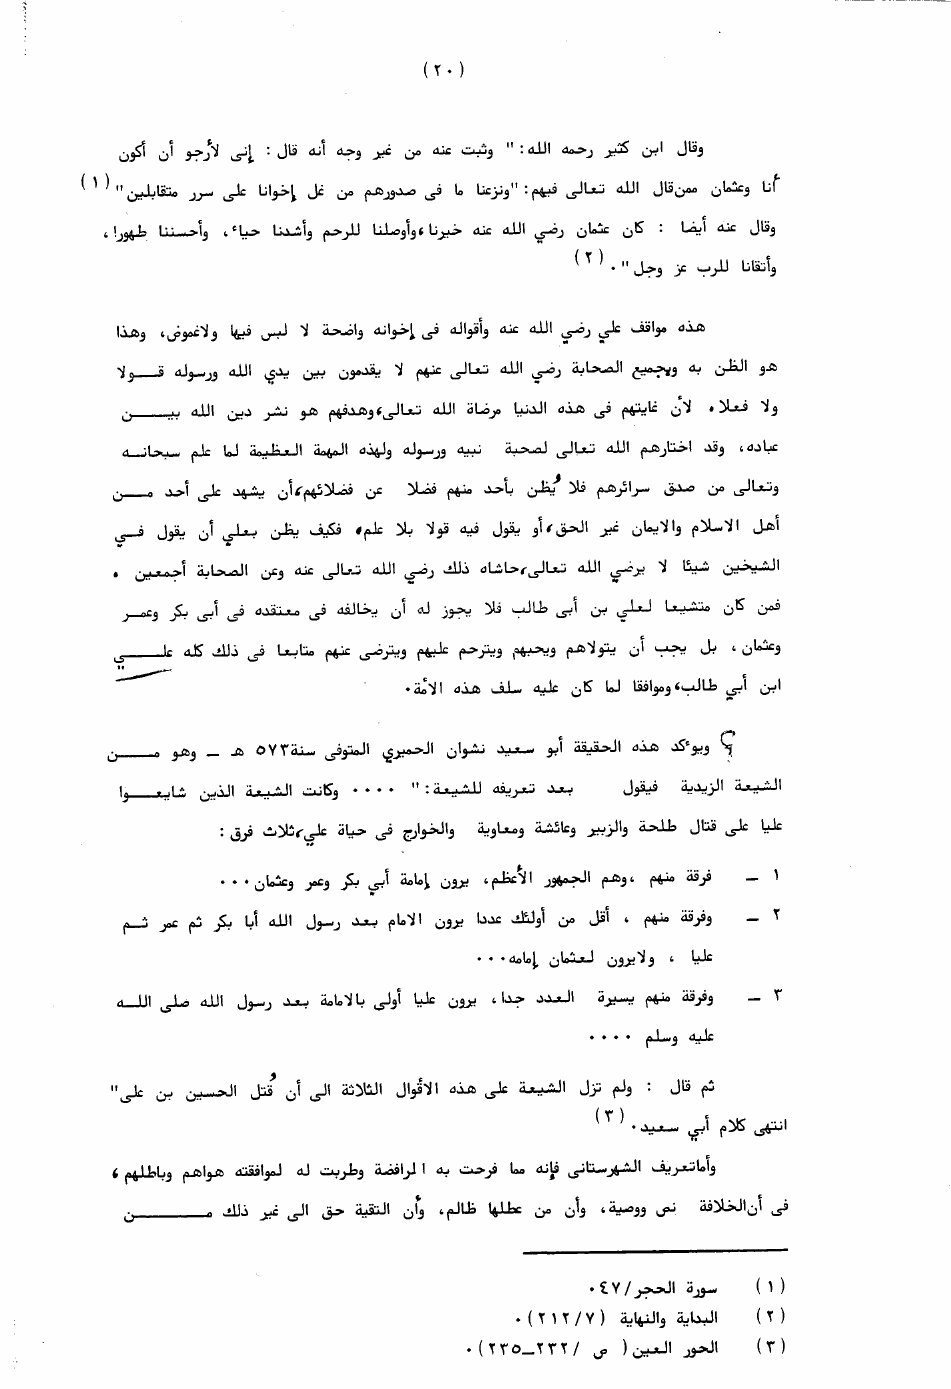 (٢٠)
وقال ابن كثير رحمه الله: " وثبت عنه من غير وجه أنه قال : إنى لأرجو أن أكون
أنا وعثمان ممن قال الله تعالى فيهم: "ونزعنا ما فى صدورهم من غل إخوانا على سرر متقابلين" (١)
وقال عنه أيضا : كان عثمان رضي الله عنه خيرنا، وأوصلنا للرحم وأشدنا حياء، وأحسننا طهورا،
وأتقانا للرب عز وجل" . (٢)
هذه مواقف علي رضي الله عنه وأقواله فى إخوانه واضحة لا لبس فيها ولاغموض، وهذا
هو الظن به وبجميع الصحابة رضي الله تعالى عنهم لا يقدمون بين يدي الله ورسوله قـــولا
ولا فعلا، لأن غايتهم فى هذه الدنيا مرضاة الله تعالى، وهدفهم هو نشر دين الله بيـــــن
عباده، وقد اختارهم الله تعالى لصحبة نبيه ورسوله ولهذه المهمة العظيمة لما علم سبحانـــه
وتعالى من صدق سرائرهم فلا يُظن بأحد منهم فضلا عن فضلائهم، أن يشهد على أحد مـــن
أهل الاسلام والايمان غير الحق، أو يقول فيه قولا بلا علم، فكيف يظن بعلي أن يقول فــي
الشيخين شيئا لا يرضي الله تعالى، حاشاه ذلك رضي الله تعالى عنه وعن الصحابة أجمعين .
فمن كان متشيعا لعلي بن أبى طالب فلا يجوز له أن يخالفه فى معتقده فى أبى بكر وعمــر
وعثمان، بل يجب أن يتولاهم ويحبهم ويترحم عليهم ويترضى عنهم متابعا فى ذلك كله علـــي
ابن أبي طالب، وموافقا لما كان عليه سلف هذه الأمة.
ويؤكد هذه الحقيقة أبو سعيد نشوان الحميري المتوفى سنة ٥٧٣ هـ ـ وهو مــــن
الشيعة الزيدية فيقول بعد تعريفه للشيعة: " .... وكانت الشيعة الذين شايعـــوا
عليا على قتال طلحة والزبير وعائشة ومعاوية والخوارج فى حياة علي، ثلاث فرق :
١ ـ فرقة منهم ،وهم الجمهور الأعظم، يرون إمامة أبي بكر وعمر وعثمان...
٢ ـ وفرقة منهم ، أقل من أولئك عددا يرون الامام بعد رسول الله أبا بكر ثم عمر ثــم
عليا ، ولايرون لعثمان إمامه...
٣ ـ وفرقة منهم يسيرة العدد جدا، يرون عليا أولى بالامامة بعد رسول الله صلى اللــه
عليه وسلم ....
ثم قال : ولم تزل الشيعة على هذه الأقوال الثلاثة الى أن قُتل الحسين بن على"
انتهى كلام أبي سعيد. (٣)
وأماتعريف الشهرستانى فإنه مما فرحت به الرافضة وطربت له لموافقته هواهم وباطلهم ،
فى أن الخلافة نص ووصية، وأن من عطلها ظالم، وأن التقية حق الى غير ذلك مــــــــن
(١) سورة الحجر/٤٧.
(٢) البداية والنهاية (٢١٢/٧) .
(٣) الحور العين( ص /٢٣٢ـ٢٣٥) .